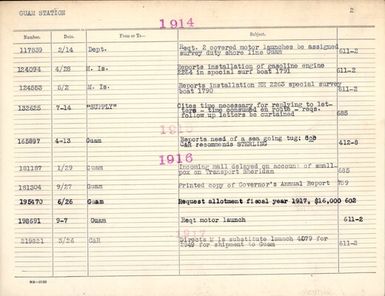 GUAM STATION 2
1914
Number. Date. From or To— Subject.
117839 2/14 Dept. Reqt. 2 covered motor launches be assigned
survey duty shore line Guam 611-2
124094 4/28 M. Is. Reports installation of gasoline engine
2264 in special surf boat 1791 611-2
124553 5/2 M. Is. Reports installation EN 2263 special survey
boat 1790 611-2
133625 7-14 "SUPPLY" Cites time necessary for replying to let-
ters - time consumed en route - reqs.
follow up letters be curtained 685
1915
165897 4-13 Guam Reports need of a sea going tug:
C&R recommends STERLING 412-8
1916
181187 1/29 Guam Incoming mail delayed on account of small-
pox on Transport Sheridan 685
181304 9/27 Guam Printed copy of Governor's Annual Report 789
195470 6/26 Guam Request allotment fiscal year 1917, $16,000 602
198691 9-7 Guam Reqt motor launch 611-2
1917
219821 3/26 C&R Directs M Is substitute launch 4079 for
for shipment to Guam 611-2